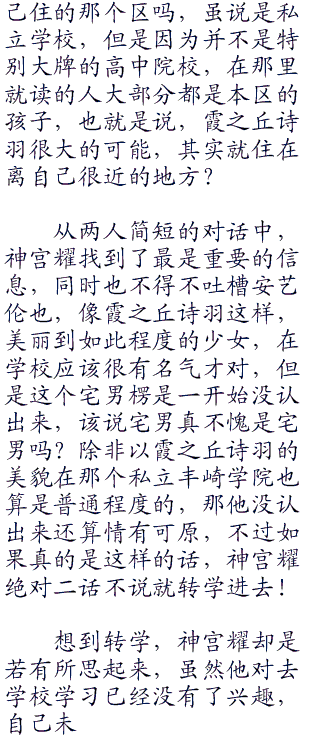 己住的那个区吗，虽说是私
立学校，但是因为并不是特
别大牌的高中院校，在那里
就读的人大部分都是本区的
孩子，也就是说，霞之丘诗
羽很大的可能，其实就住在
离自己很近的地方？
从两人简短的对话中，
神宫耀找到了最是重要的信
息，同时也不得不吐槽安艺
伦也，像霞之丘诗羽这样，
美丽到如此程度的少女，在
学校应该很有名气才对，但
是这个宅男楞是一开始没认
出来，该说宅男真不愧是宅
男吗？除非以霞之丘诗羽的
美貌在那个私立丰崎学院也
算是普通程度的，那他没认
出来还算情有可原，不过如
果真的是这样的话，神宫耀
绝对二话不说就转学进去！
想到转学，神宫耀却是
若有所思起来，虽然他对去
学校学习已经没有了兴趣，
自己未